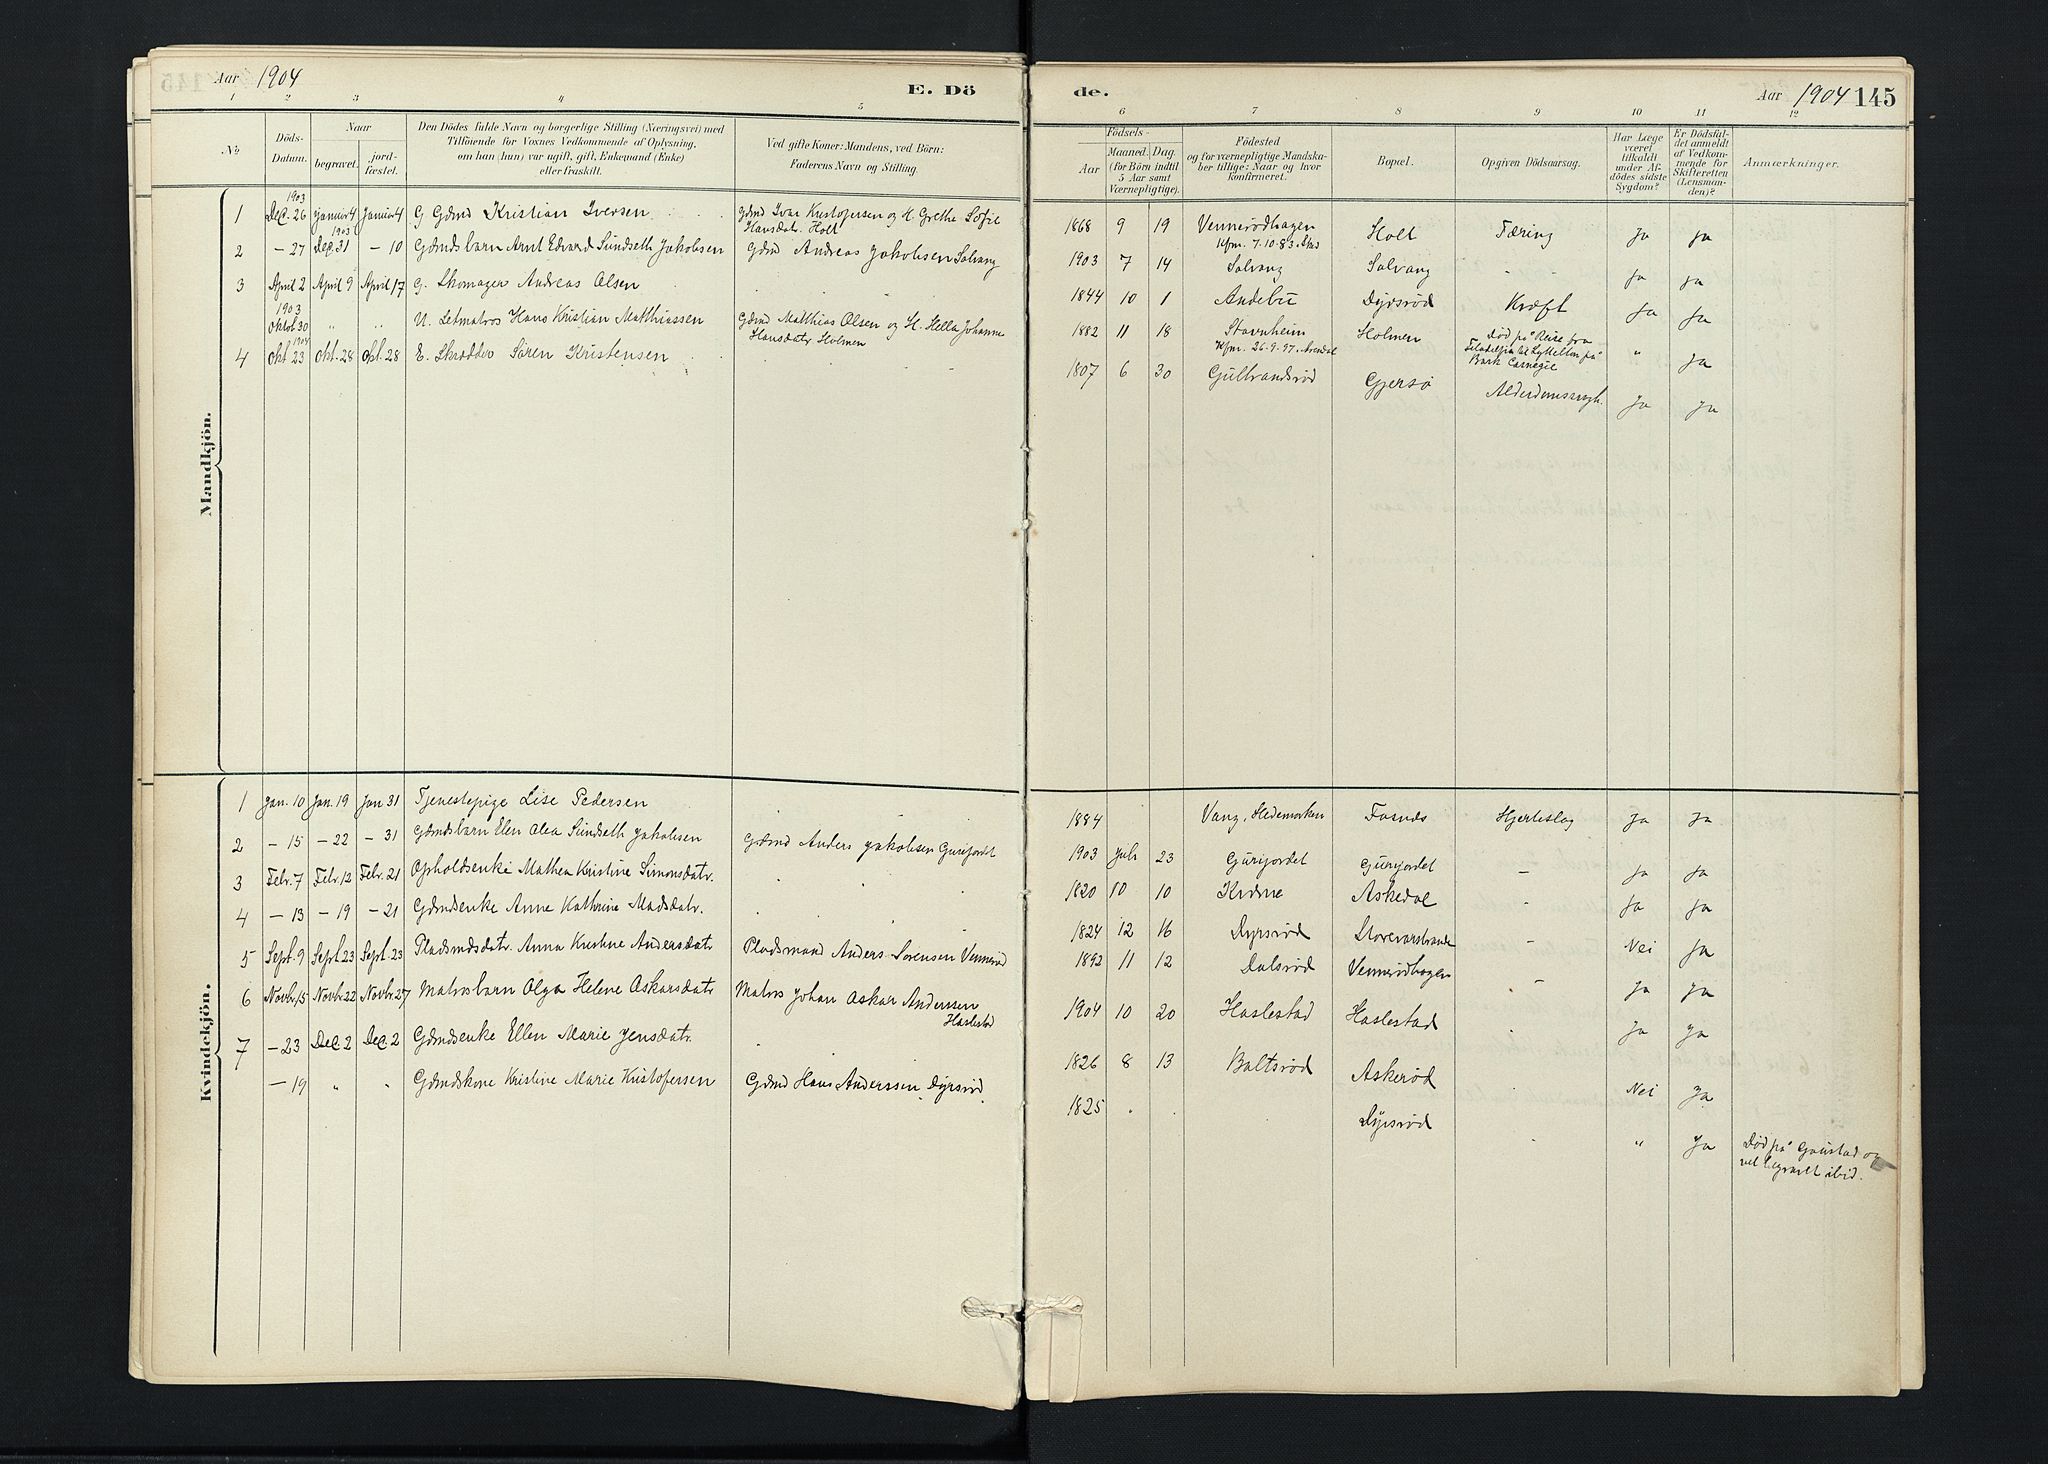 Aar 1904
E. Dö
1 2 3 4 5
No
Döds-Datum.
Naar
begravet.
jord-fæstet.
Den Dödes fulde Navn og borgerlige Stilling (Næringsvei) med
Tilföiende for Voxnes Vedkommende af Oplysning,
om han (hun) var ugift, gift, Enkemand (Enke)
eller fraskilt.
Ved gifte Koner: Mandens, ved Börn:
Faderens Navn og Stilling.
Mandkjön.
1903
1 Dec. 26 Januar 4 Januar 4 G Gdmd Kristian Iversen Gdmd Ivar Kristofersen og H. Grethe Sofie
Hansdatr. Holt
1903
2 - 27 Dec. 31 - 10 Gdmdsbarn Arnt Edvard Sundseth Jakobsen Gdmd Andreas Jakobsen Solvang
3 April 2 April 9 April 17 G. Skomager Andreas Olsen
1903
Oktbr 30 " " U. Letmatros Hans Kristian Matthiassen Gdmd Matthias Olsen og H. Hella Johanne
Hansdatr Holmen
1904
4 Okt. 23 Okt. 28 Okt. 28 E. Skrædder Sören Kristensen
Kvindekjön.
1 Jan. 10 Jan. 19 Jan 31 Tjenestepige Lise Pedersen
2 - 15 - 22 - 31 Gdmdsbarn Elen Olea Sundseth Jakobsen Gdmd Anders Jakobsen Gurijordet
3 Febr. 7 Febr. 12 Febr. 21 Opholdsenke Mathea Kristine Simonsdatr.
4 - 13 - 19 - 21 Gdmdsenke Anne Kathrine Madsdatr.
5 Sept. 9 Sept. 23 Sept. 23 Pladsmdsdatr. Anna Kristine Andersdatr Pladsmand Anders Sorensen Vennerød
6 Novbr. 15 Novbr. 22 Novbr. 27 Matrosbarn Olga Helene Askarsdatr Matros Johan Askar Anderssen
Haslestad
7 - 23 Dec. 2 Dec. 2 Gdmdsenke Ellen Marie Jensdatr.
- 19 " " Gdmdskone Kristine Marie Kristofersen Gdmd Hans Anderssen Dyrsrød.
de.
Aar 1904 145
6 7 8 9 10 11 12
Födsels-
Aar
Maaned. Dag.
(for Börn indtil
5 Aar samt
Værnepligtige).
Födested
og for værnepligtige Mandska-
ber tillige: Naar og hvor
konfirmeret.
Bopæl.
Opgiven Dödsaarsag.
Har Læge
været
tilkaldt
under Af-
dödes sidste
Sygdom?
Er Dödsful-
det anmeldt
af Vedkom-
mende for
Skifteretten
(Lensman-
den)?
Anmærkninger.
1868 9 19 Vennerødhagen Holt Tæring Ja Ja
Kfm. 7.10.83
1903 7 14 Solvang Solvang " " Ja Ja
1844 10 1 Andebu Dyrsrød Kræft Ja Ja
1882 11 18 Stavnheim Holmen Død på Reise fra
Kfm. 26.9.97. Arendal Filadelfia til Lyttelton på " Ja
Bark Carnegie
1807 6 30 Gulbrandsrød Gjersø Alderdomssvagh. Ja Ja
1884 Vang, Hedemarken Fosnæs Hjerteslag Ja Ja
1903 Juli 23 Gurijordet Gurijordet - Ja Ja
1820 10 10 Askedal - Ja Ja
1824 12 16 Dyrsrød - Nei Ja
1892 11 12 Dalsrød Vennerødhagen - Ja Ja
1904 10 20 Haslestad Haslestad . Ja Ja
1826 8 13 Baltsrød Askerød . Nei Ja
1825 . . Dyrsrød . " Ja Død på Gaustad og
begravet ibid.